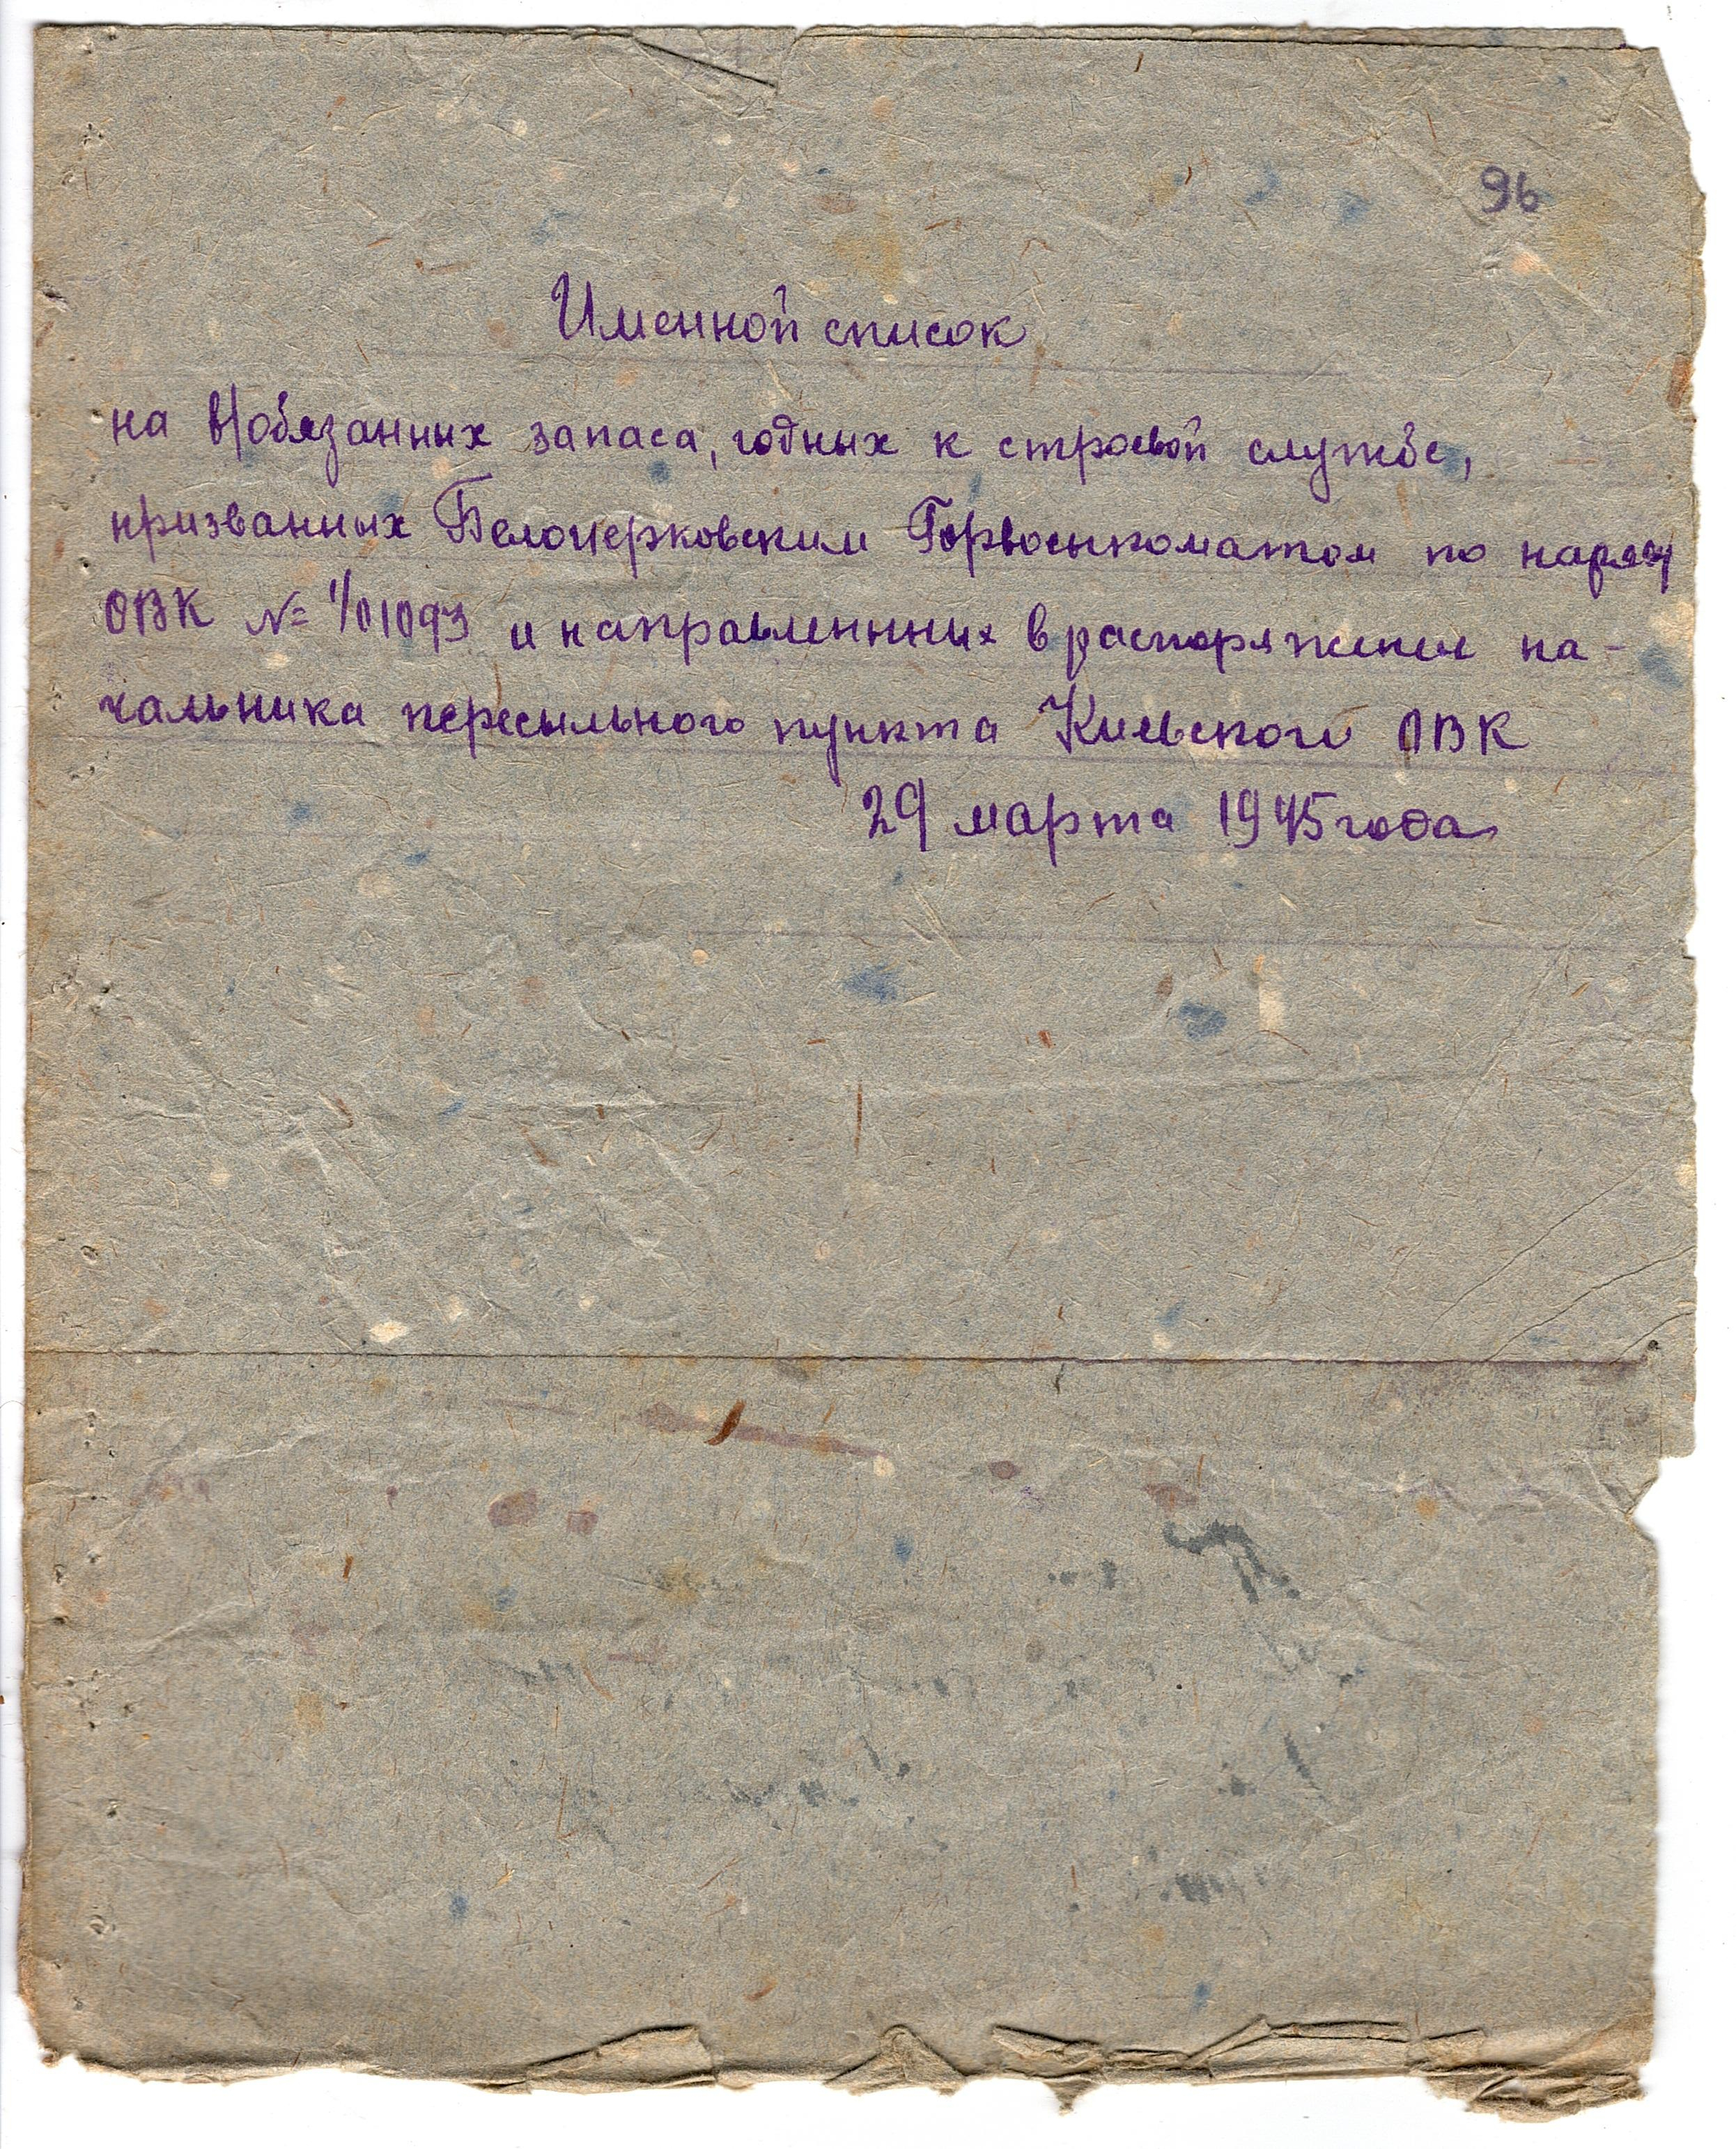 96
Именной список
на в/обязанных запаса, годных к строевой службе,
призванных Белоцерковским Горвоенкоматом по наряду
ОВК № 1/01093 и направленнных в распоряжение на-
чальника пересыльного пункта Киевского ОВК
29 марта 1945 года